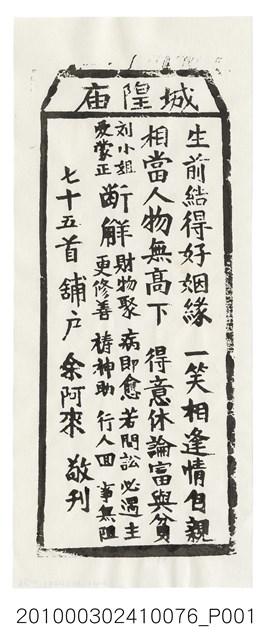 城隍庙
生前結得好姻緣 一笑相逢情自親
相當人物無高下 得意休論富與貧
劉小姐
愛蒙正
断解
財物聚 病即愈 若問訟 必遇主
更修善 禱神助 行人回 事無阻
七十五首 舖户 余阿來 敬刋
201000302410076_P001